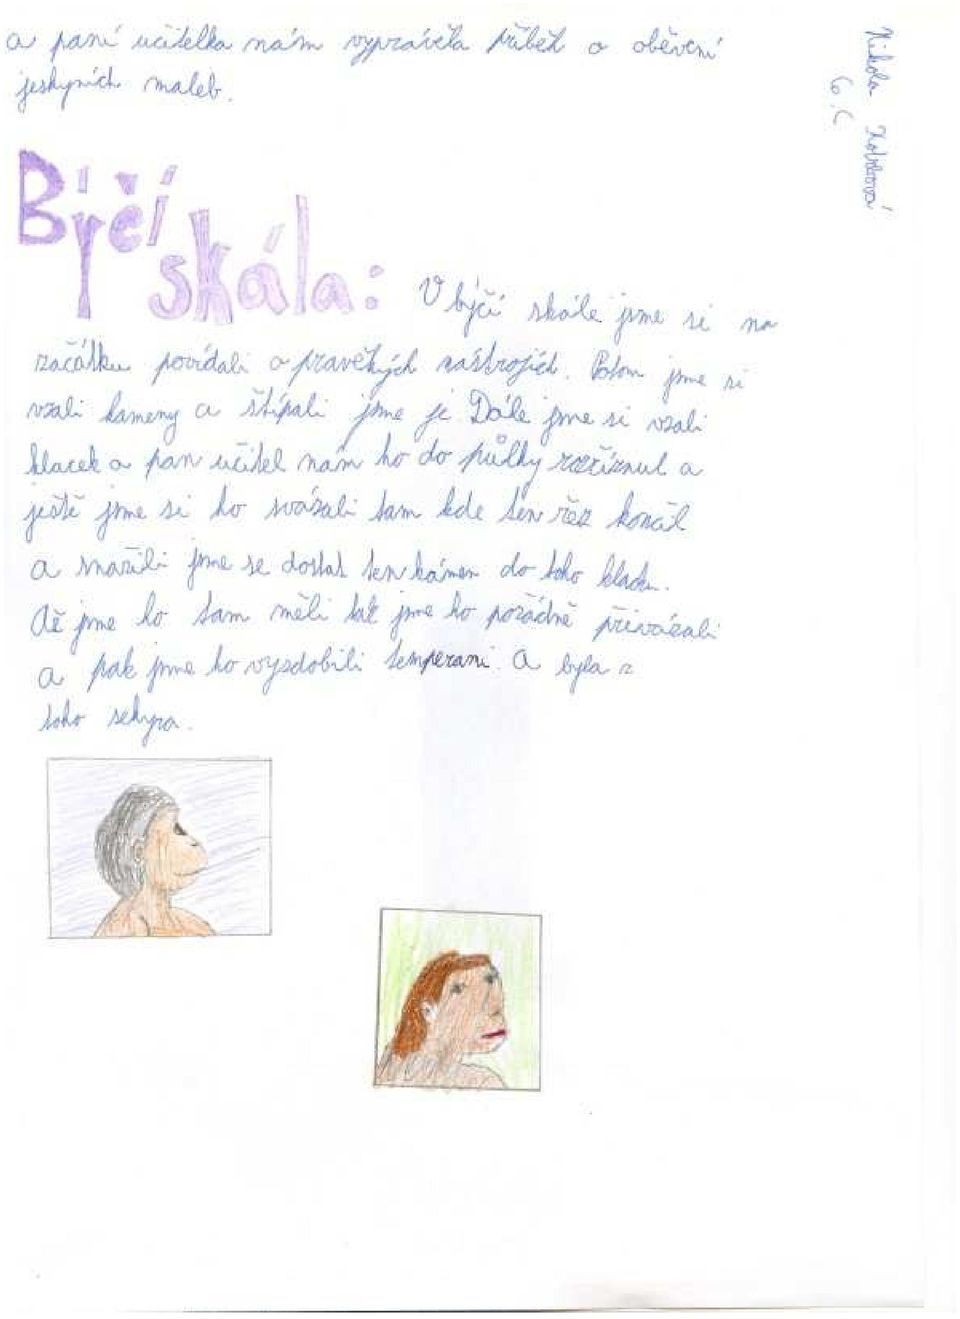 a paní učitelka nám vyprávěla příběh o oběvení
jeskyních maleb.
Nikola
6.C
Býčí
skála:
V býčí skále jsme si na
začátku povídali o pravěkých nástrojích. Potom jsme si
vzali kameny a štípali jsme je Dále jsme si vzali
klacek a pan učitel nám ho do půlky rozříznul a
ještě jsme si ho svázali tam kde ten řez končil
a snažili jsme se dostat ten kámen do toho klacku.
Až jsme ho tam měli tak jsme ho pořádně přivázali
a pak jsme ho vyzdobili temperami. A byla z
toho sekyra.